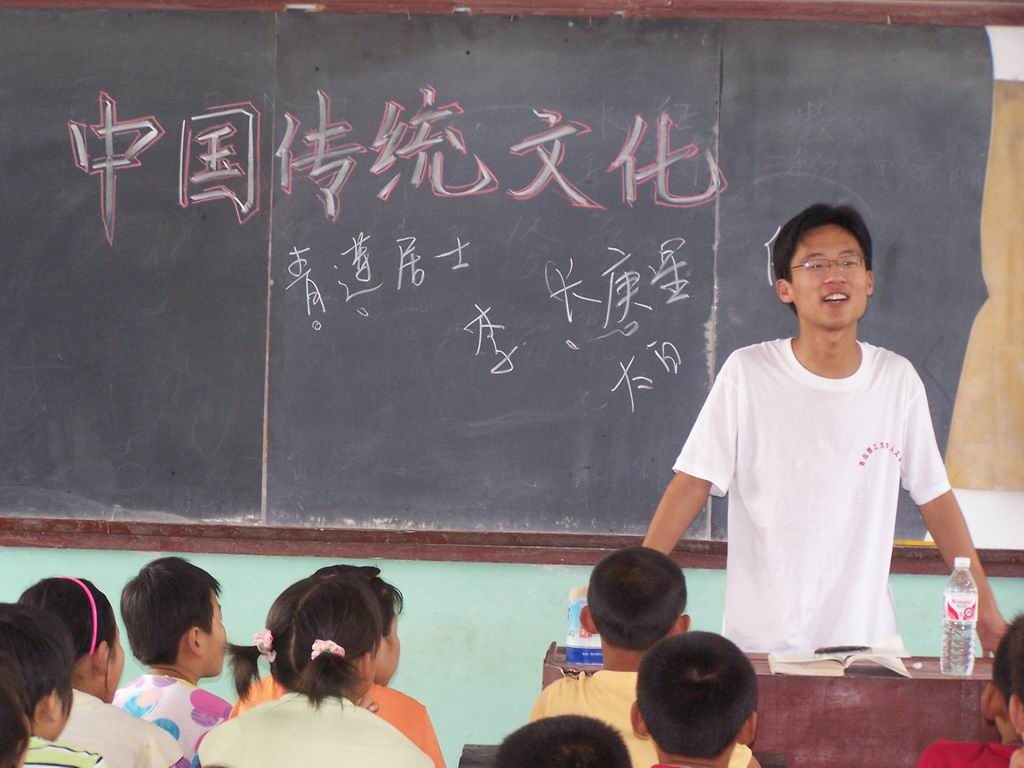 中国传统文化
青莲居士
长庚星
李
太白